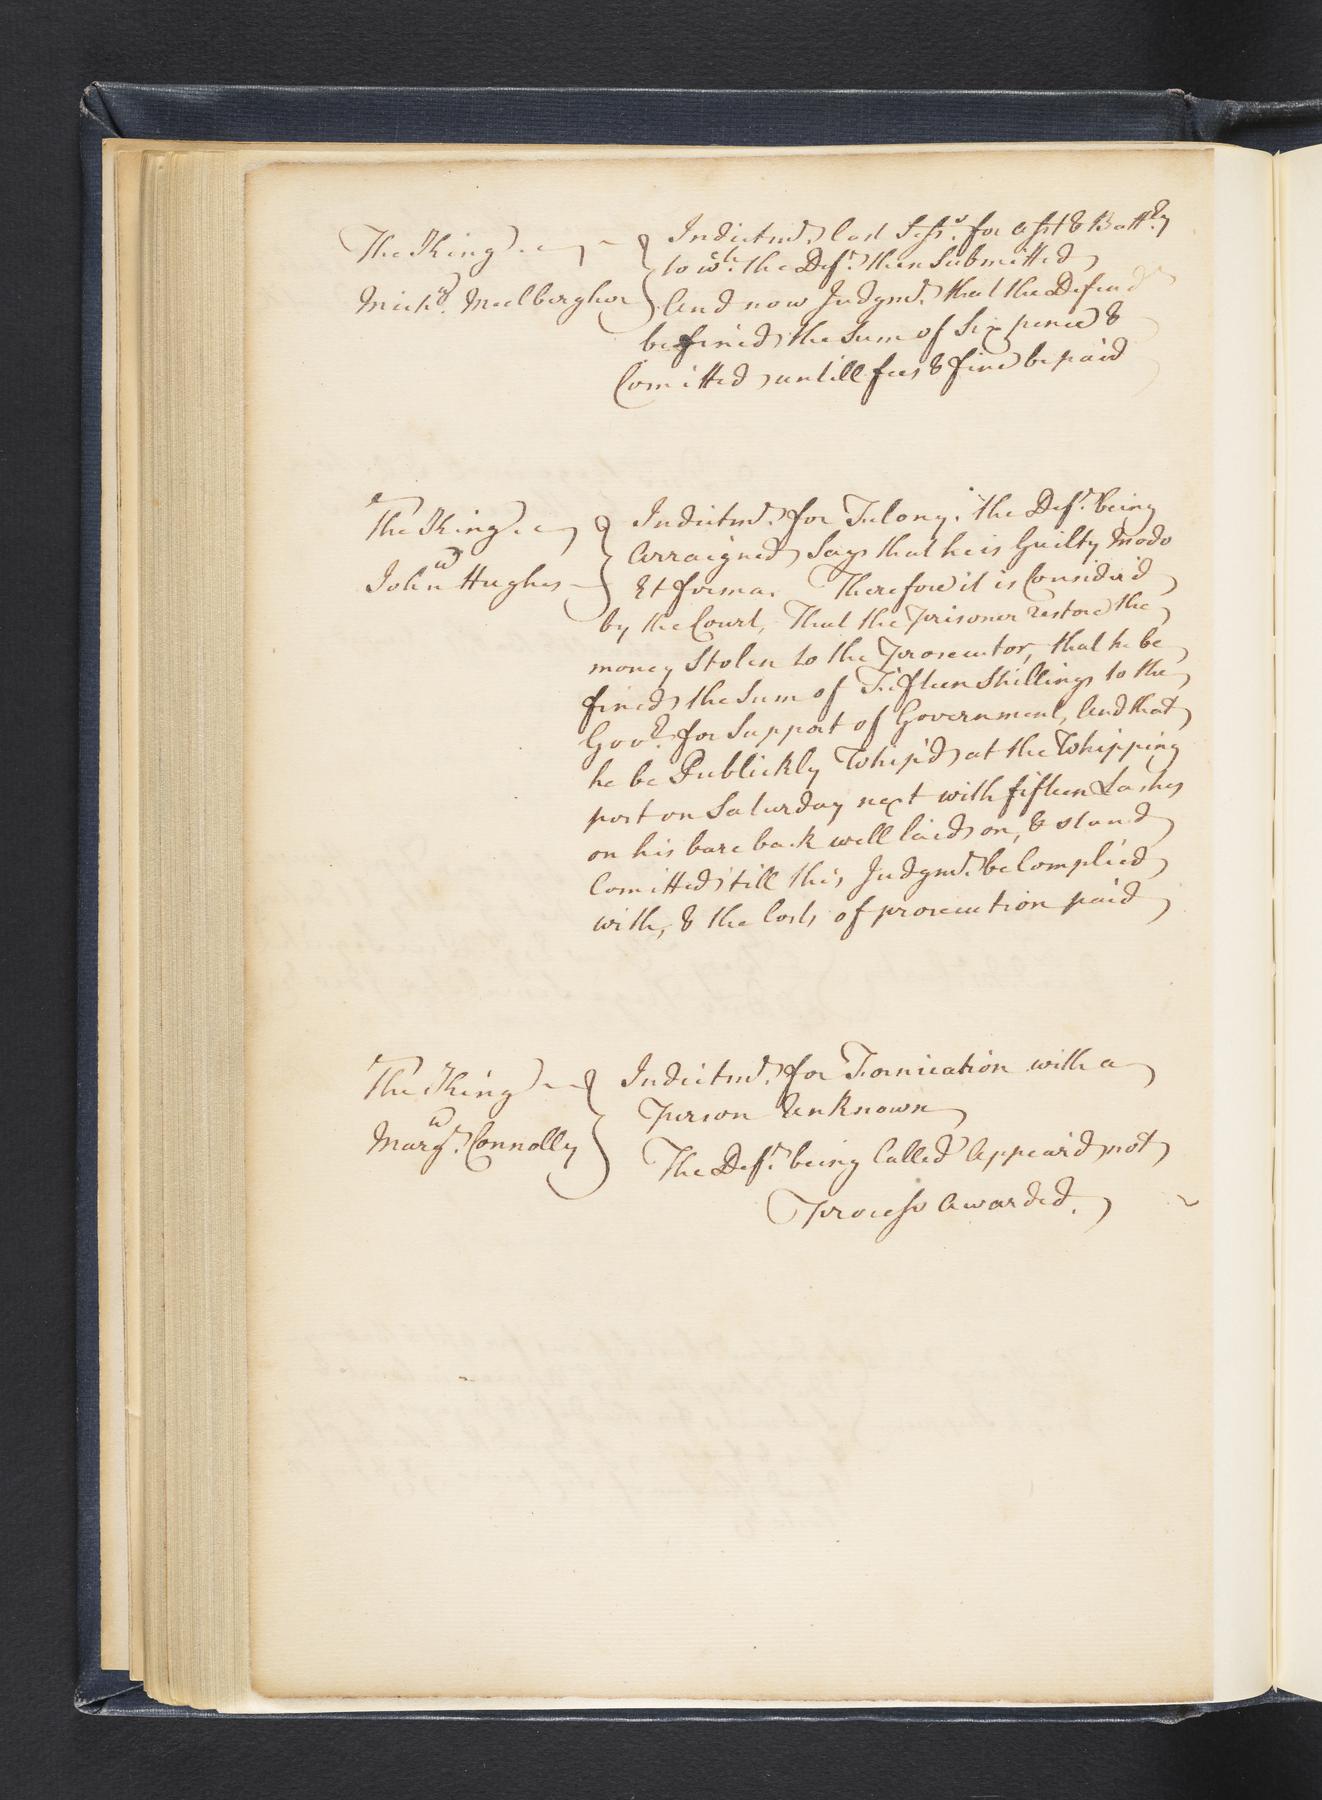 The King
v
Mich^l. Meelbergher
Indictm^t. last Sess^s. for Ass^t & Batt^ry
to w^ch. the Def^t. then Submitted
And now Judgm^t. that the Defend^t
be fined the Sum of Six pence &
Comitted untill fees & fine be paid
The King
v
John Hughes
Indictm^t. for Felony. the Def^t. being
Arraigned Says that he is Guilty Modo
Et forma. Therefore it is Consider'd
by the Court, That the Prisoner restore the
money Stolen to the Prosecutor, that he be
fined the Sum of Fifteen Shillings to the
Gov^r. for Support of Government, And that
he be Publickly Whip'd at the Whipping
post on Saturday next with fifteen Lashes
on his bare back well laid on, & stand
Comitted till this Judgm^t. be Complied
with, & the Costs of prosecution paid
The King
v
Marg^t. Connolly
Indictm^t. for Fornication with a
Person Unknown
The Def^t. being Called Appear'd not
Process Awarded.